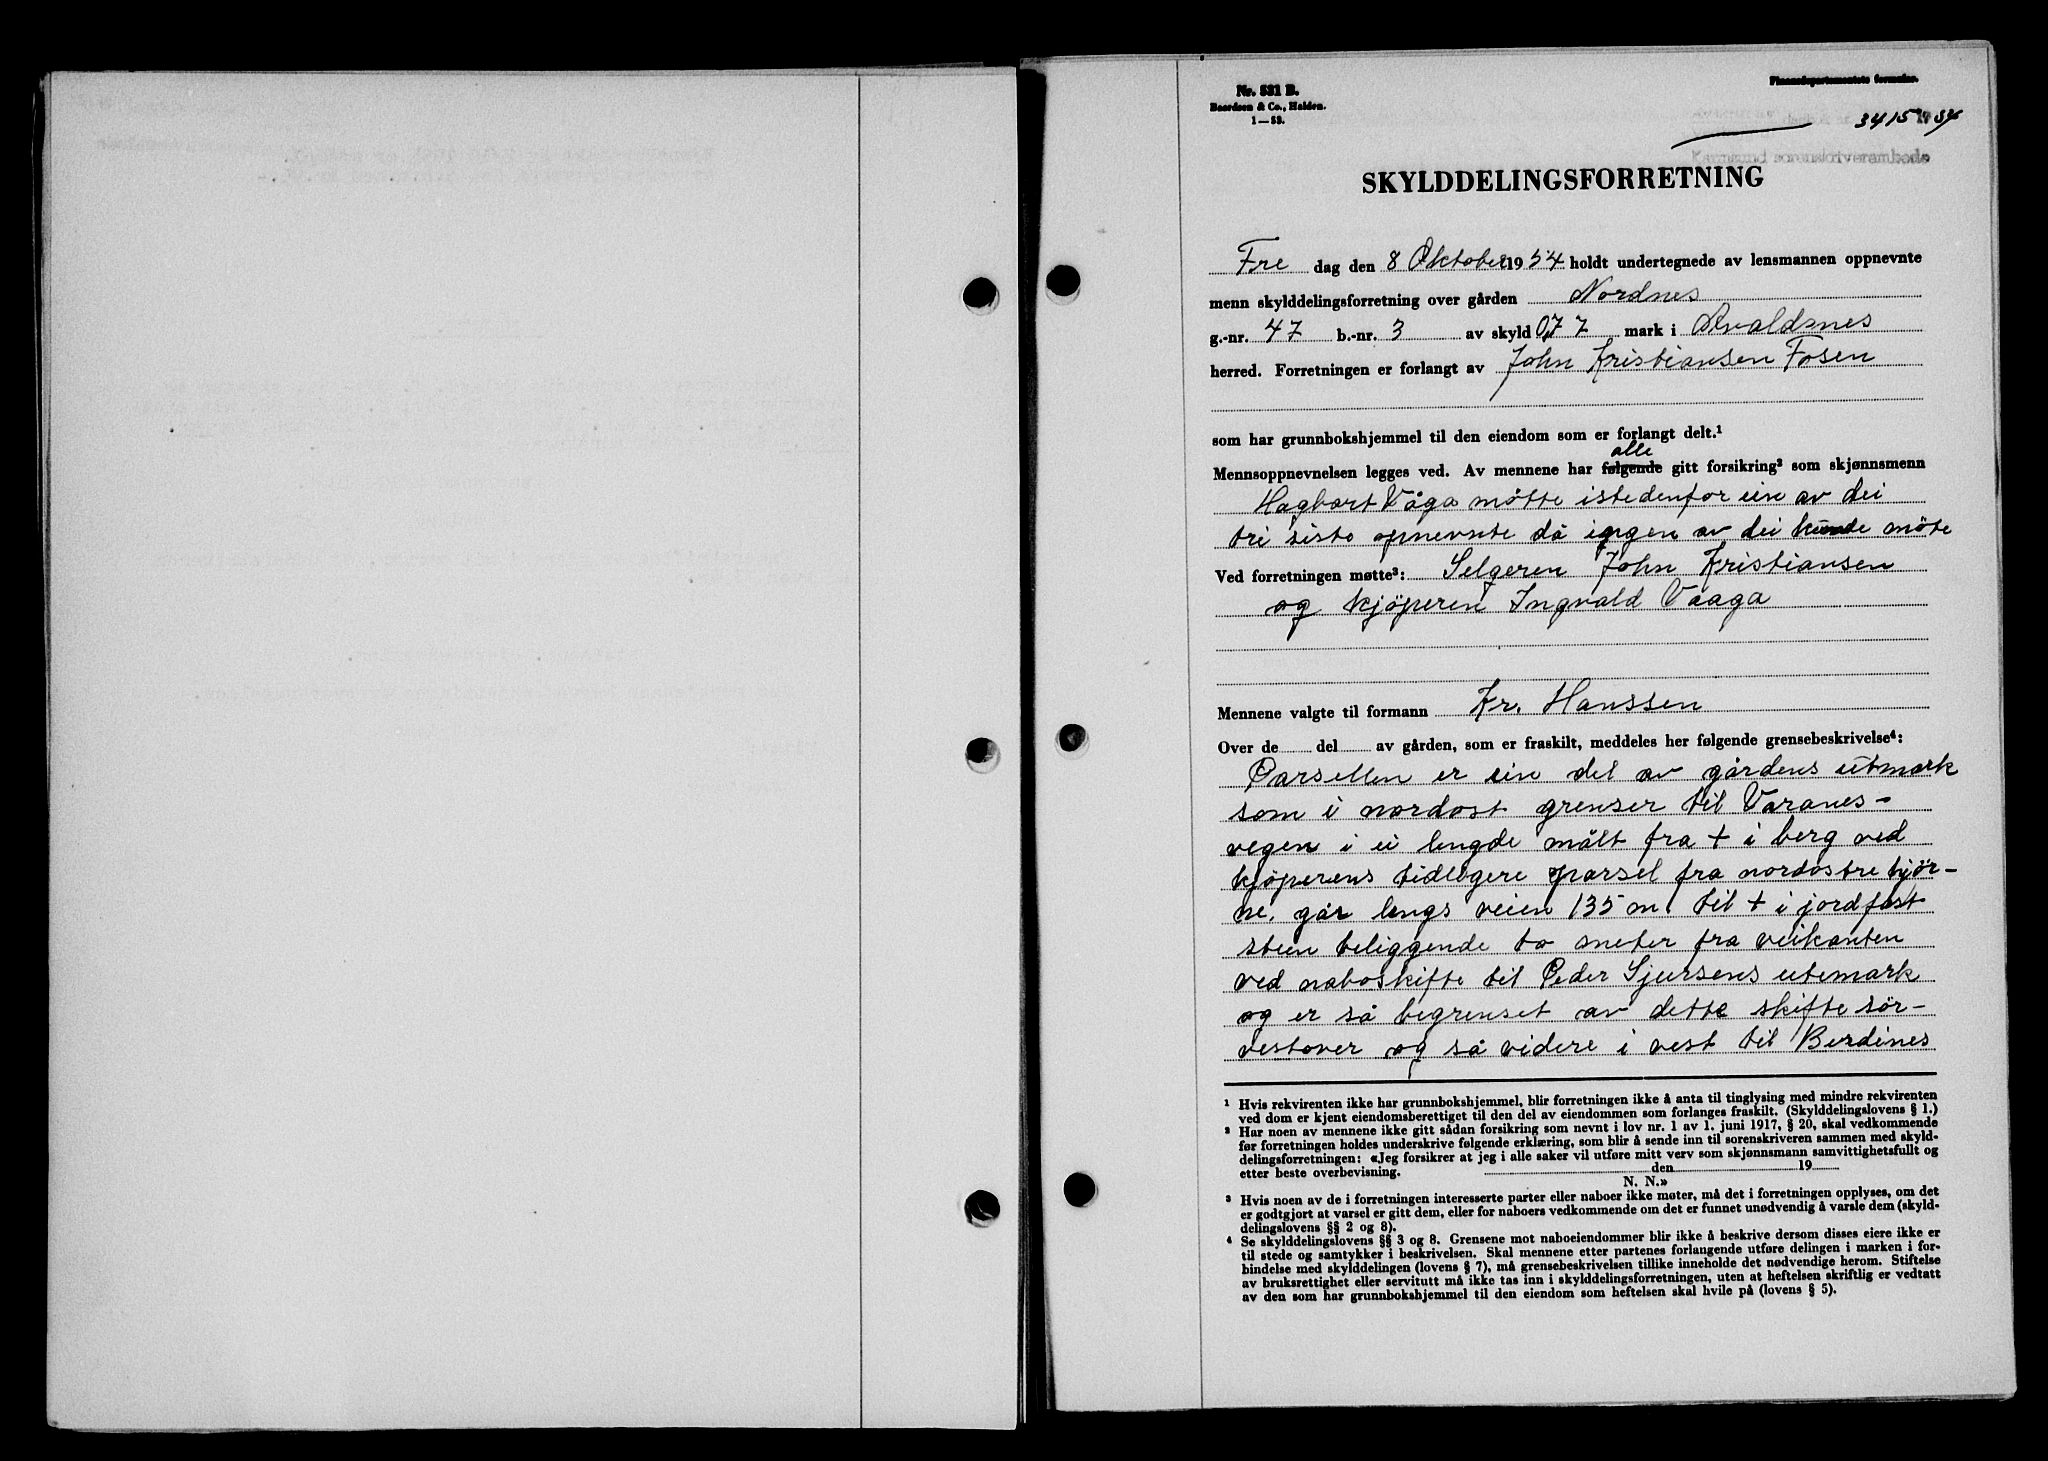 Nr. 531 B.
Baardsen & Co., Halden.
1—53.
Finansdepartementets formular.
3415 54
Karmsund sorenskriverembede
SKYLDDELINGSFORRETNING
Fre dag den 8 Oktober 1954 holdt undertegnede av lensmannen oppnevnte
menn skylddelingsforretning over gården Nordnes
g.-nr. 47 b.-nr. 3 av skyld 0,77 mark i Avaldsnes
herred. Forretningen er forlangt av John Kristiansen Fosen
som har grunnbokshjemmel til den eiendom som er forlangt delt.¹
alle
Mennsoppnevnelsen legges ved. Av mennene har følgende gitt forsikring² som skjønnsmenn
Hagbart Våga møtte istedenfor ein av dei
tri siste opnevnte då ingen av dei kunde møte
Ved forretningen møtte³: Selgeren John Kristiansen
og kjøperen Ingvald Vaaga
Mennene valgte til formann Kr. Hanssen
Over de del av gården, som er fraskilt, meddeles her følgende grensebeskrivelse⁴:
Parsellen er ein del av gårdens utmark
som i nordost grenser til Varanes-
vegen i ei lengde målt fra + i berg ved
kjøperens tidlegere parsel fra nordostre hjør-
ne, går lengs veien 135 m. til + i jordfast
steen beliggende to meter fra veikanten
ved naboskifte til Peder Sjursens utemark
og er så begrenset av dette skifte sør-
vestover og så videre i vest til Berdines
¹ Hvis rekvirenten ikke har grunnbokshjemmel, blir forretningen ikke å anta til tinglysing med mindre rekvirenten
ved dom er kjent eiendomsberettiget til den del av eiendommen som forlanges fraskilt. (Skylddelingslovens § 1.)
² Har noen av mennene ikke gitt sådan forsikring som nevnt i lov nr. 1 av 1. juni 1917, § 20, skal vedkommende
før forretningen holdes underskrive følgende erklæring, som blir å sende inn til sorenskriveren sammen med skyld-
delingsforretningen: «Jeg forsikrer at jeg i alle saker vil utføre mitt verv som skjønnsmann samvittighetsfullt og
etter beste overbevisning. den 19
N. N.»
³ Hvis noen av de i forretningen interesserte parter eller naboer ikke møter, må det i forretningen opplyses, om det
er godtgjort at varsel er gitt dem, eller for naboers vedkommende om det er funnet unødvendig å varsle dem (skyld-
delingslovens §§ 2 og 8).
⁴ Se skylddelingslovens §§ 3 og 8. Grensene mot naboeiendommer blir ikke å beskrive dersom disses eiere ikke er
til stede og samtykker i beskrivelsen. Skal mennene etter partenes forlangende utføre delingen i marken i for-
bindelse med skylddelingen (lovens § 7), må grensebeskrivelsen tillike inneholde det nødvendige herom. Stiftelse
av bruksrettighet eller servitutt må ikke tas inn i skylddelingsforretningen, uten at heftelsen skriftlig er vedtatt
av den som har grunnbokshjemmel til den eiendom som heftelsen skal hvile på (lovens § 5).